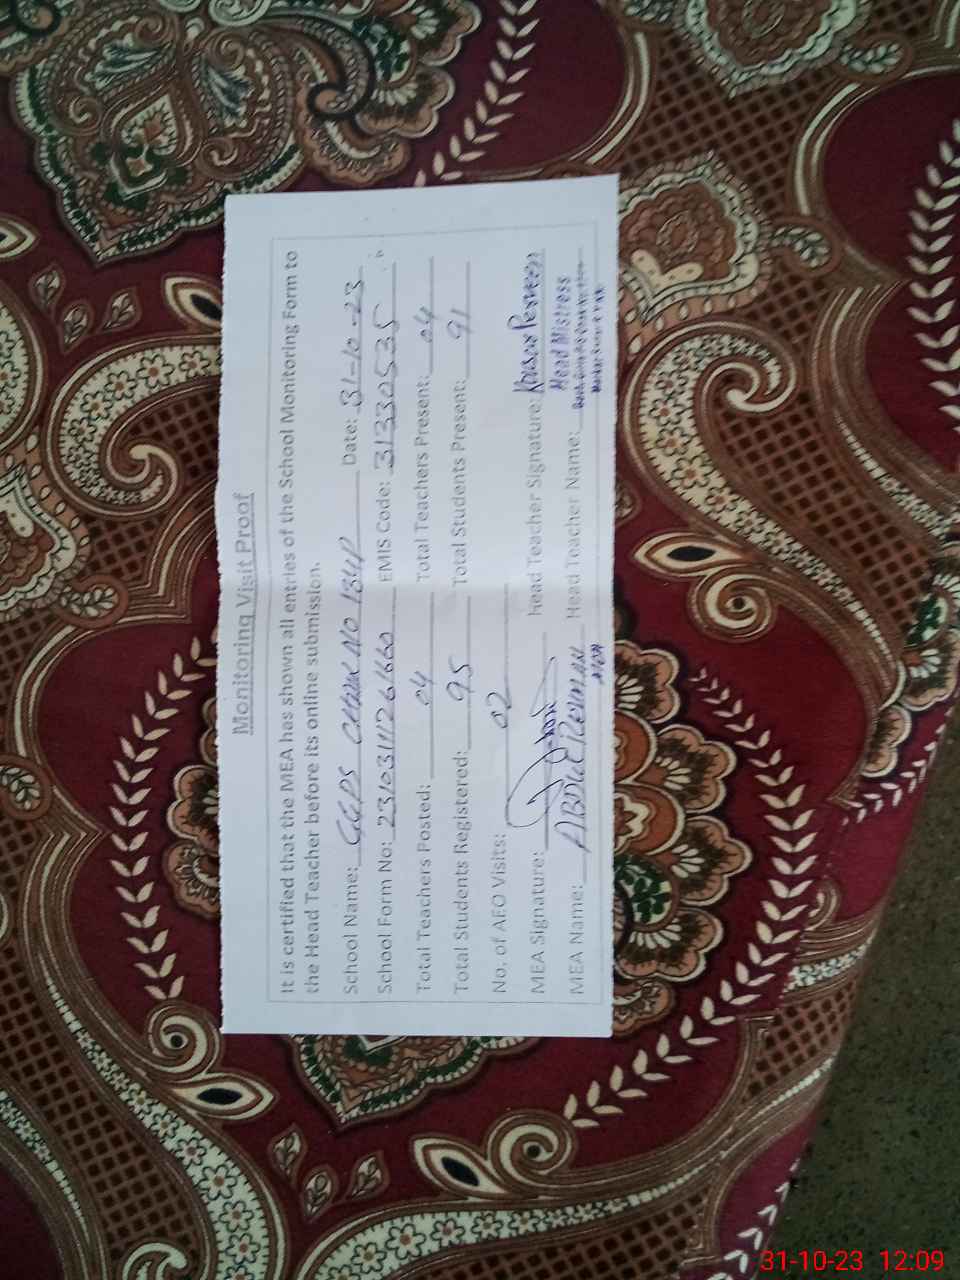 Monitoring Visit Proof
It is certified that the MEA has shown all entries of the School Monitoring Form to
the Head Teacher before its online submission.
School Name: GGPS CHAK NO 134P Date: 31-10-23
School Form No: EMIS Code: 31330535
Total Teachers Posted: 04 Total Teachers Present: 04
Total Students Registered: 95 Total Students Present: 91
No. of AEO Visits: 02
MEA Signature: Head Teacher Signature: Perveen
MEA Name: ABDUL REHMAN Head Teacher Name: Head Mistress
31-10-23 12:09